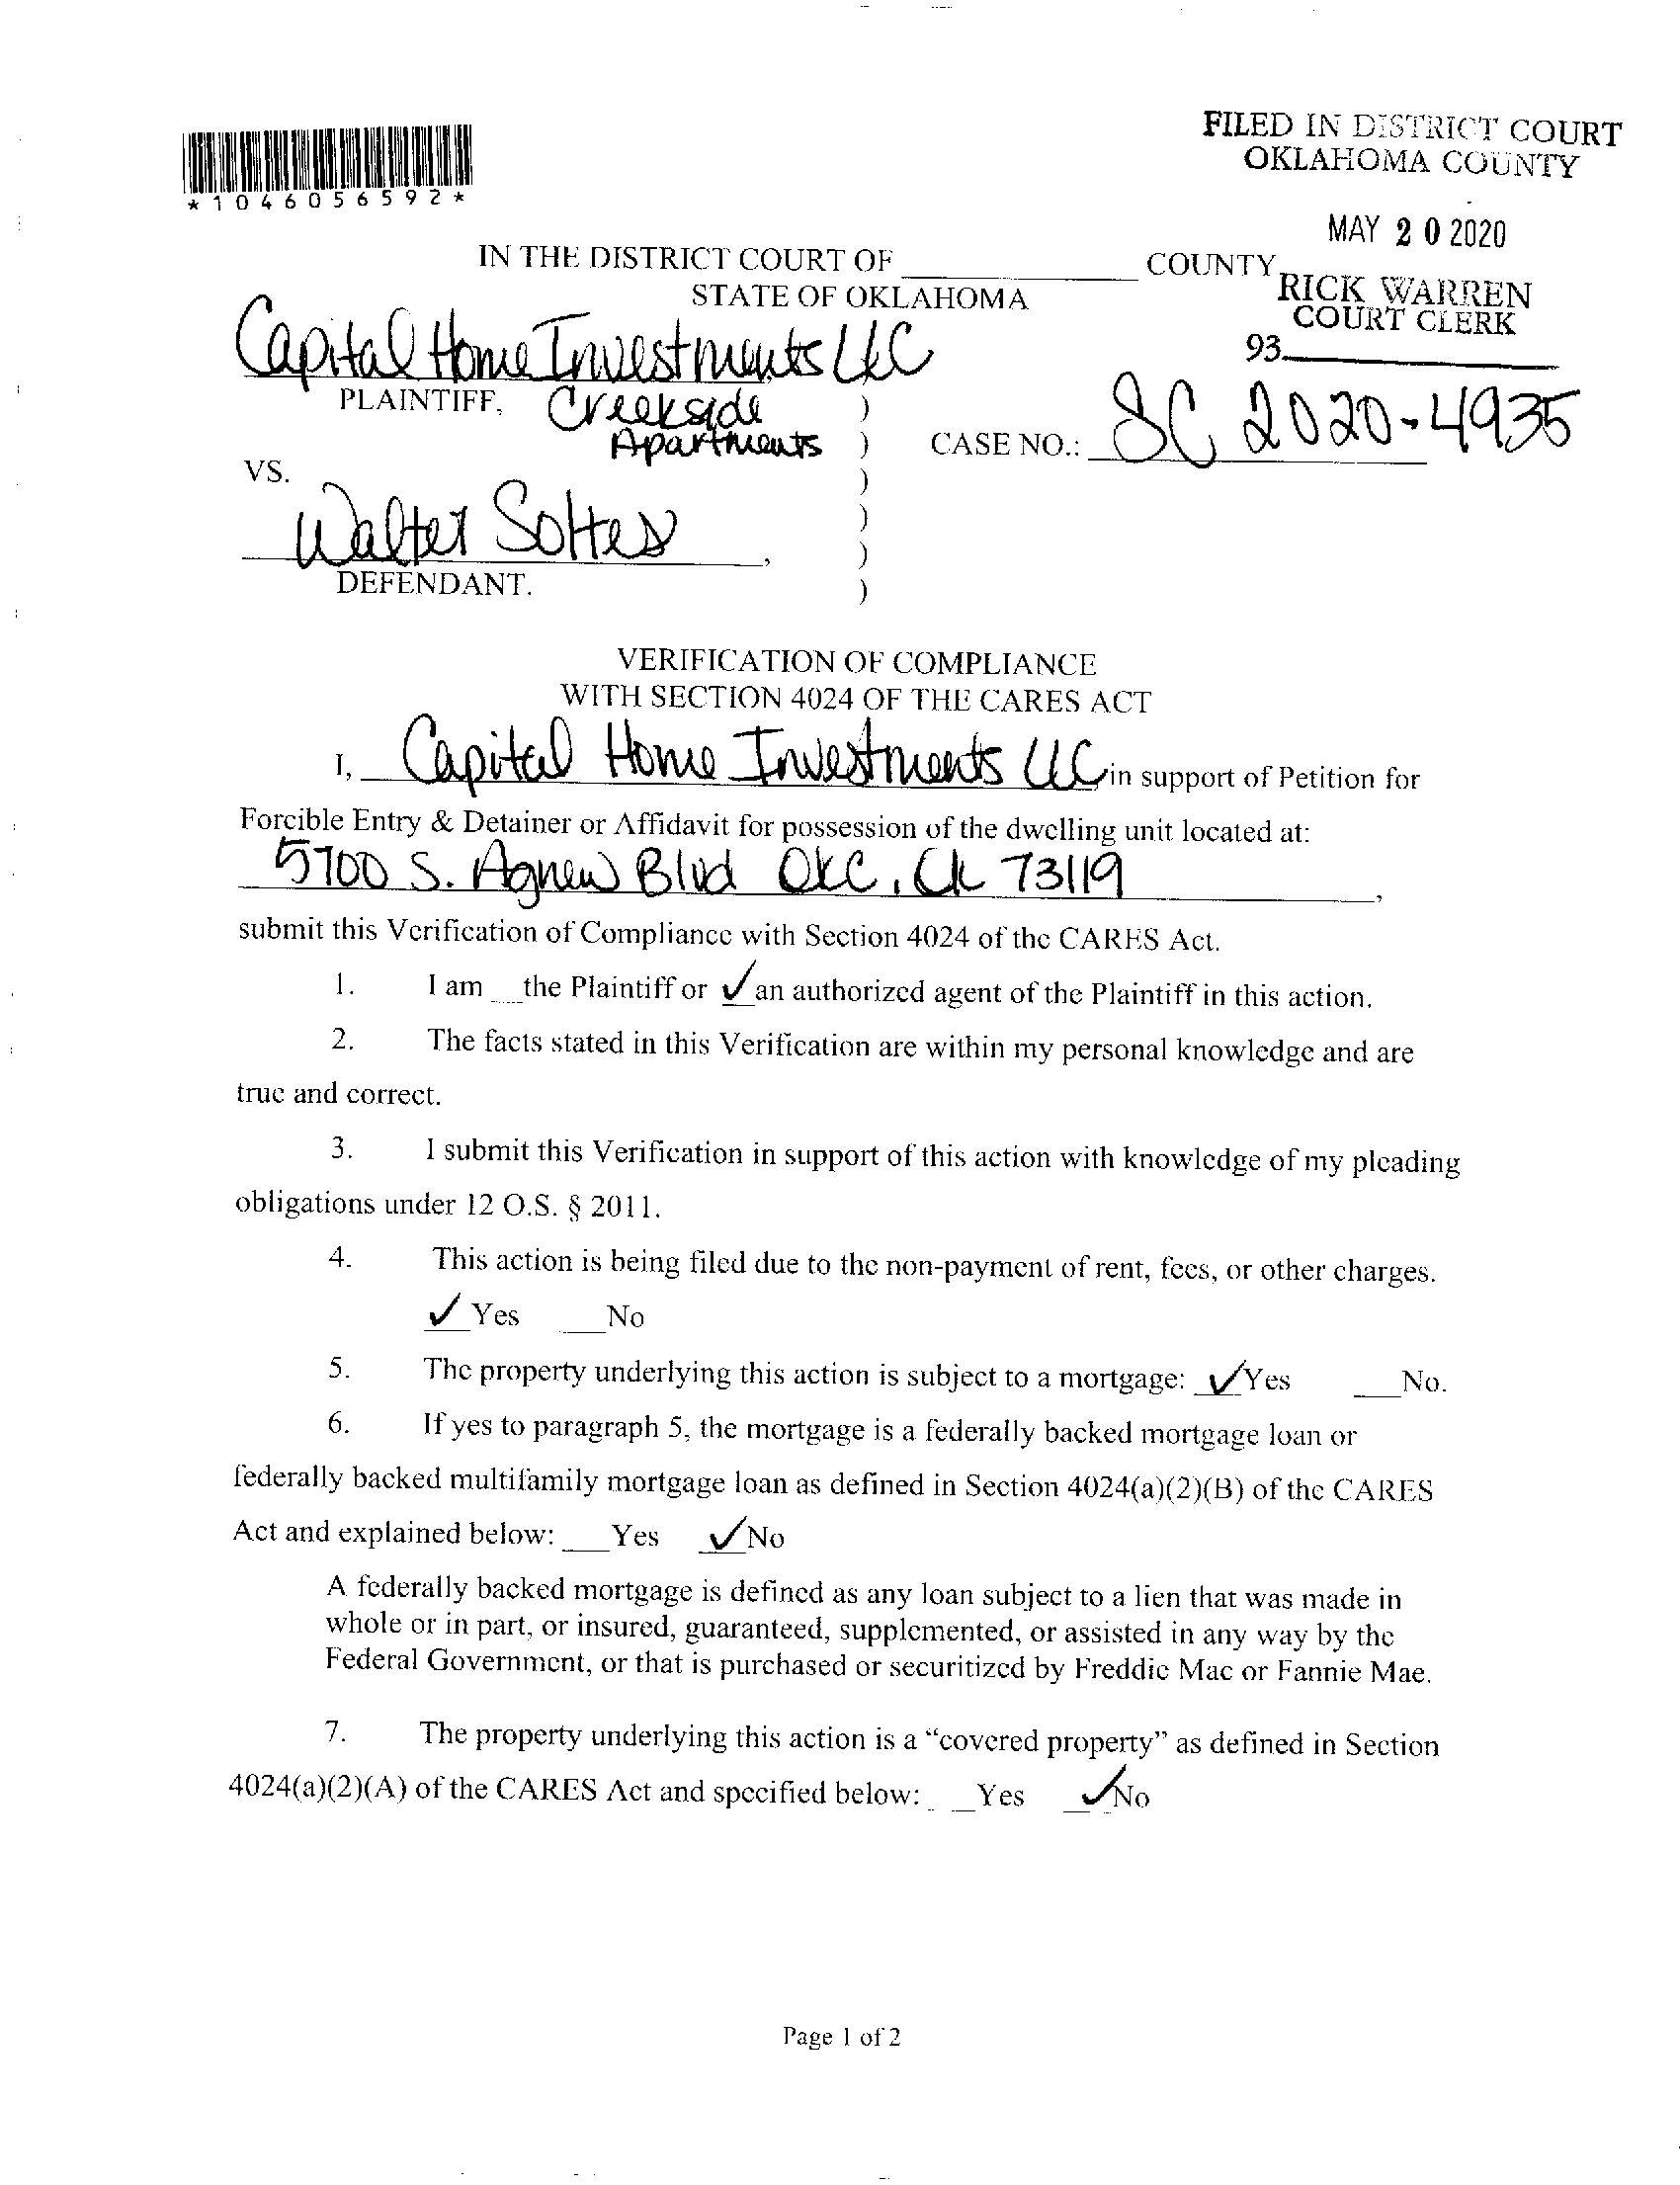 *1046056592*
FILED IN DISTRICT COURT
OKLAHOMA COUNTY
MAY 20 2020
RICK WARREN
COURT CLERK
93
IN THE DISTRICT COURT OF ____________ COUNTY
STATE OF OKLAHOMA
Capital Home Investments LLC
PLAINTIFF, Creekside )
Apartments ) CASE NO.: SC 2020-4935
VS. )
)
Walter Soltes, )
DEFENDANT. )
VERIFICATION OF COMPLIANCE
WITH SECTION 4024 OF THE CARES ACT
I, Capital Home Investments LLC, in support of Petition for
Forcible Entry & Detainer or Affidavit for possession of the dwelling unit located at:
5700 S. Agnew Blvd OKC, Ok 73119,
submit this Verification of Compliance with Section 4024 of the CARES Act.
1. I am __the Plaintiff or ✓ an authorized agent of the Plaintiff in this action.
2. The facts stated in this Verification are within my personal knowledge and are
true and correct.
3. I submit this Verification in support of this action with knowledge of my pleading
obligations under 12 O.S. § 2011.
4. This action is being filed due to the non-payment of rent, fees, or other charges.
✓ Yes ___No
5. The property underlying this action is subject to a mortgage: ✓ Yes ___No.
6. If yes to paragraph 5, the mortgage is a federally backed mortgage loan or
federally backed multifamily mortgage loan as defined in Section 4024(a)(2)(B) of the CARES
Act and explained below: ___Yes ✓ No
A federally backed mortgage is defined as any loan subject to a lien that was made in
whole or in part, or insured, guaranteed, supplemented, or assisted in any way by the
Federal Government, or that is purchased or securitized by Freddie Mac or Fannie Mae.
7. The property underlying this action is a “covered property” as defined in Section
4024(a)(2)(A) of the CARES Act and specified below: ___Yes ✓ No
Page 1 of 2